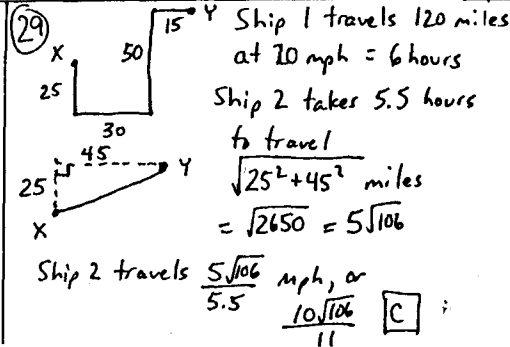 29
X 25 30 50 15 Y
Ship 1 travels 120 miles
at 20 mph = 6 hours
Ship 2 takes 5.5 hours
to travel
√25²+45² miles
= √2650 = 5√106
25 45 Y
X
Ship 2 travels 5√106/5.5 mph, or
10√106/11 C